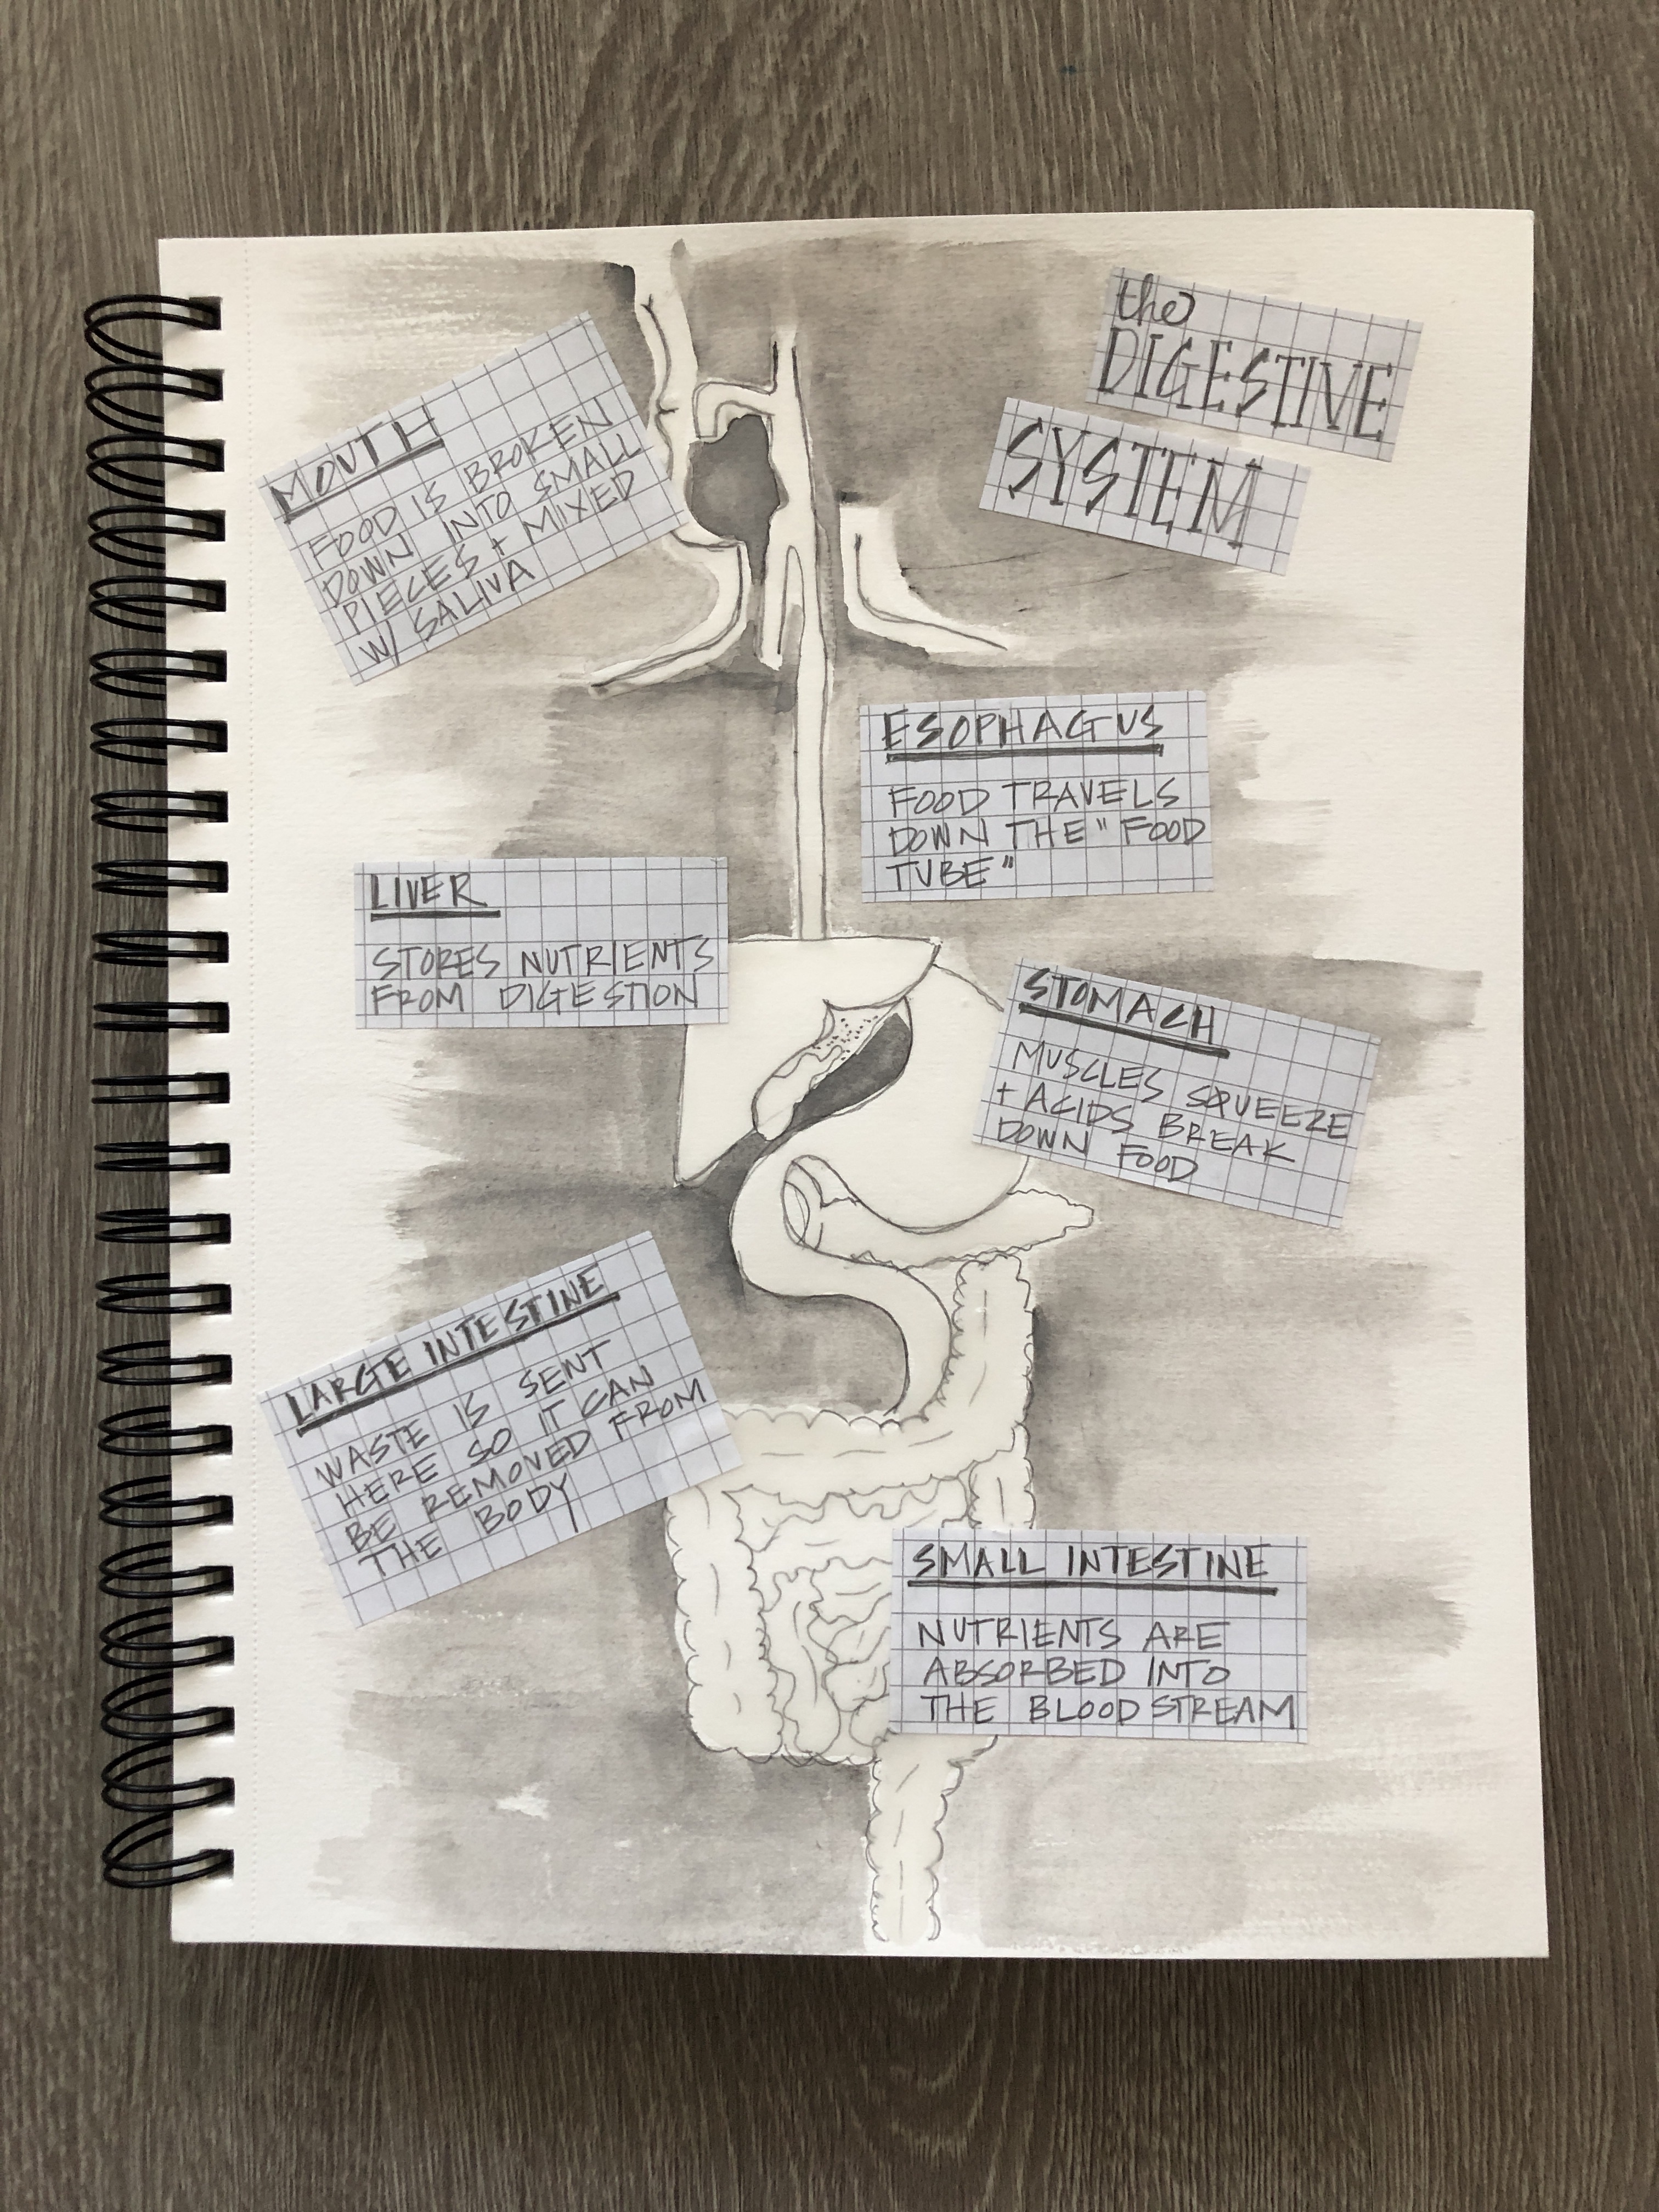 the
DIGESTIVE
SYSTEM
MOUTH
FOOD IS BROKEN
DOWN INTO SMALL
PIECES + MIXED
W/ SALIVA
ESOPHAGUS
FOOD TRAVELS
DOWN THE "FOOD
TUBE"
LIVER
STORES NUTRIENTS
FROM DIGESTION
STOMACH
MUSCLES SQUEEZE
+ ACIDS BREAK
DOWN FOOD
LARGE INTESTINE
WASTE IS SENT
HERE SO IT CAN
BE REMOVED FROM
THE BODY
SMALL INTESTINE
NUTRIENTS ARE
ABSORBED INTO
THE BLOOD STREAM